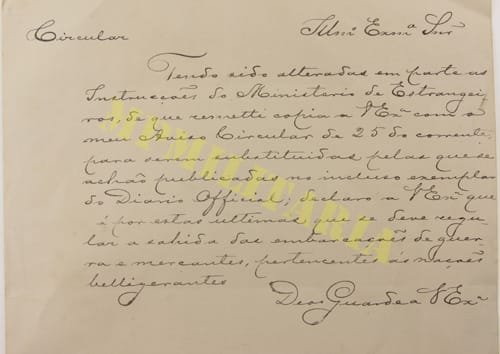 Circular
Illmº Exmº Snr
Tendo sido alteradas em parte as
Instrucções do Ministerio de Estrangei
ros, de que remetti copia a VExª com o
meu Aviso Circular de 25 do corrente,
para serem substituidas pelas que se
achão publicadas no incluso exemplar
do Diario Official; declaro a VExª que
é por estas ultimas que se deve regu
lar a sahida das embarcações de guer
ra e mercantes, pertencentes ás nações
belligerantes
Deos Guarde a VExª
MYMILITARIA